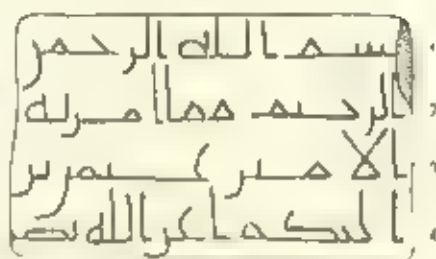 بسم الله الرحمن
الرحيم مما امر به
الامير عمر بن
اعز الله نصر